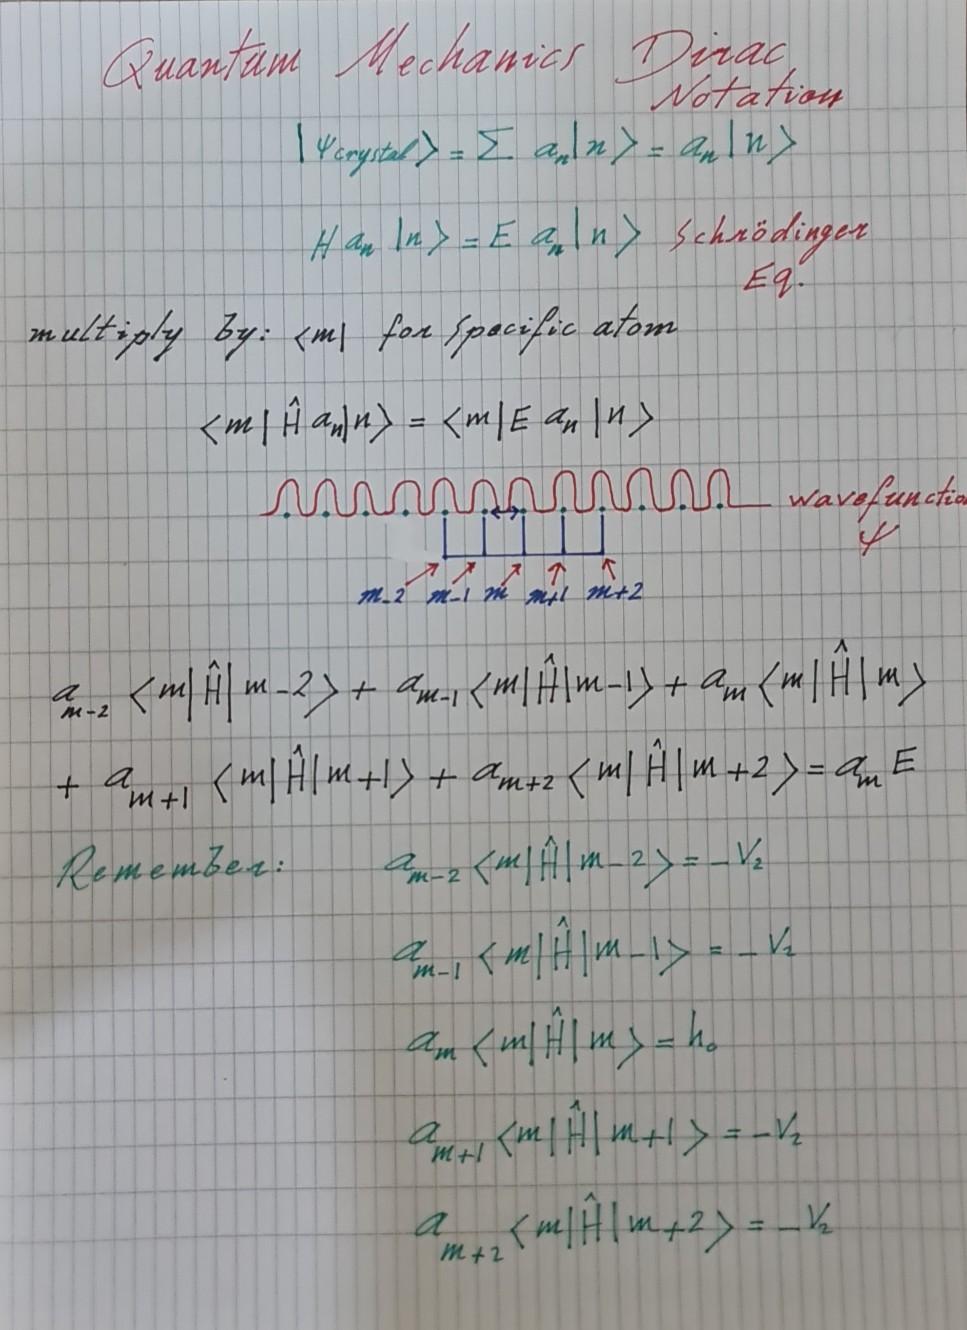 Quantum Mechanics Dirac
Notation
|ψcrystal⟩ = Σ aₙ|n⟩ = aₙ|n⟩
H aₙ |n⟩ = E aₙ|n⟩ Schrödinger
Eq.
multiply by: ⟨m| for specific atom
⟨m|Ĥ aₙ|n⟩ = ⟨m|E aₙ|n⟩
wavefunctio
ψ
m-2 m-1 m m+1 m+2
a_{m-2} ⟨m|Ĥ|m-2⟩ + a_{m-1} ⟨m|Ĥ|m-1⟩ + a_m ⟨m|Ĥ|m⟩
+ a_{m+1} ⟨m|Ĥ|m+1⟩ + a_{m+2} ⟨m|Ĥ|m+2⟩ = a_m E
Remember: a_{m-2} ⟨m|Ĥ|m-2⟩ = -V₂
a_{m-1} ⟨m|Ĥ|m-1⟩ = -V₂
a_m ⟨m|Ĥ|m⟩ = h₀
a_{m+1} ⟨m|Ĥ|m+1⟩ = -V₂
a_{m+2} ⟨m|Ĥ|m+2⟩ = -V₂